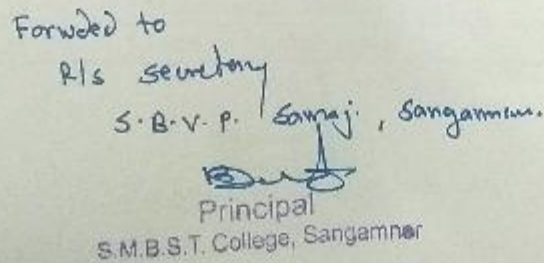 Forwded to
R/s secretary
S.B.V.P. Samaj., Sangamner.
Principal
S.M.B.S.T. College, Sangamner